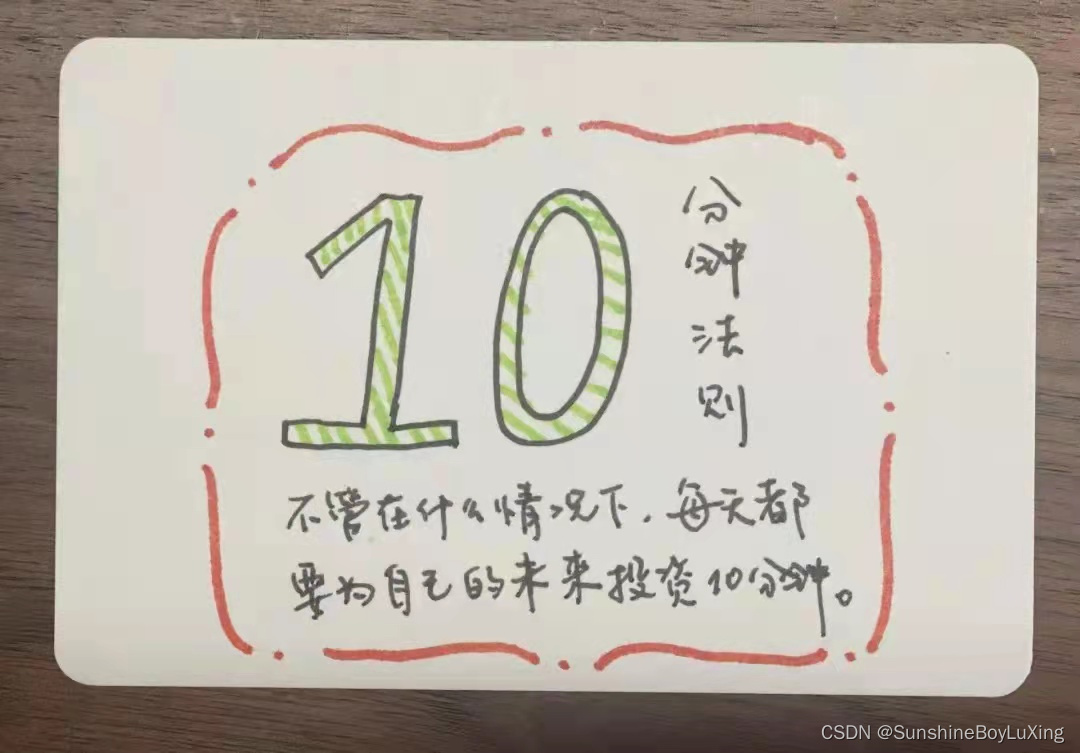 10
分钟法则
不管在什么情况下，每天都
要为自己的未来投资10分钟。
CSDN @SunshineBoyLuXing